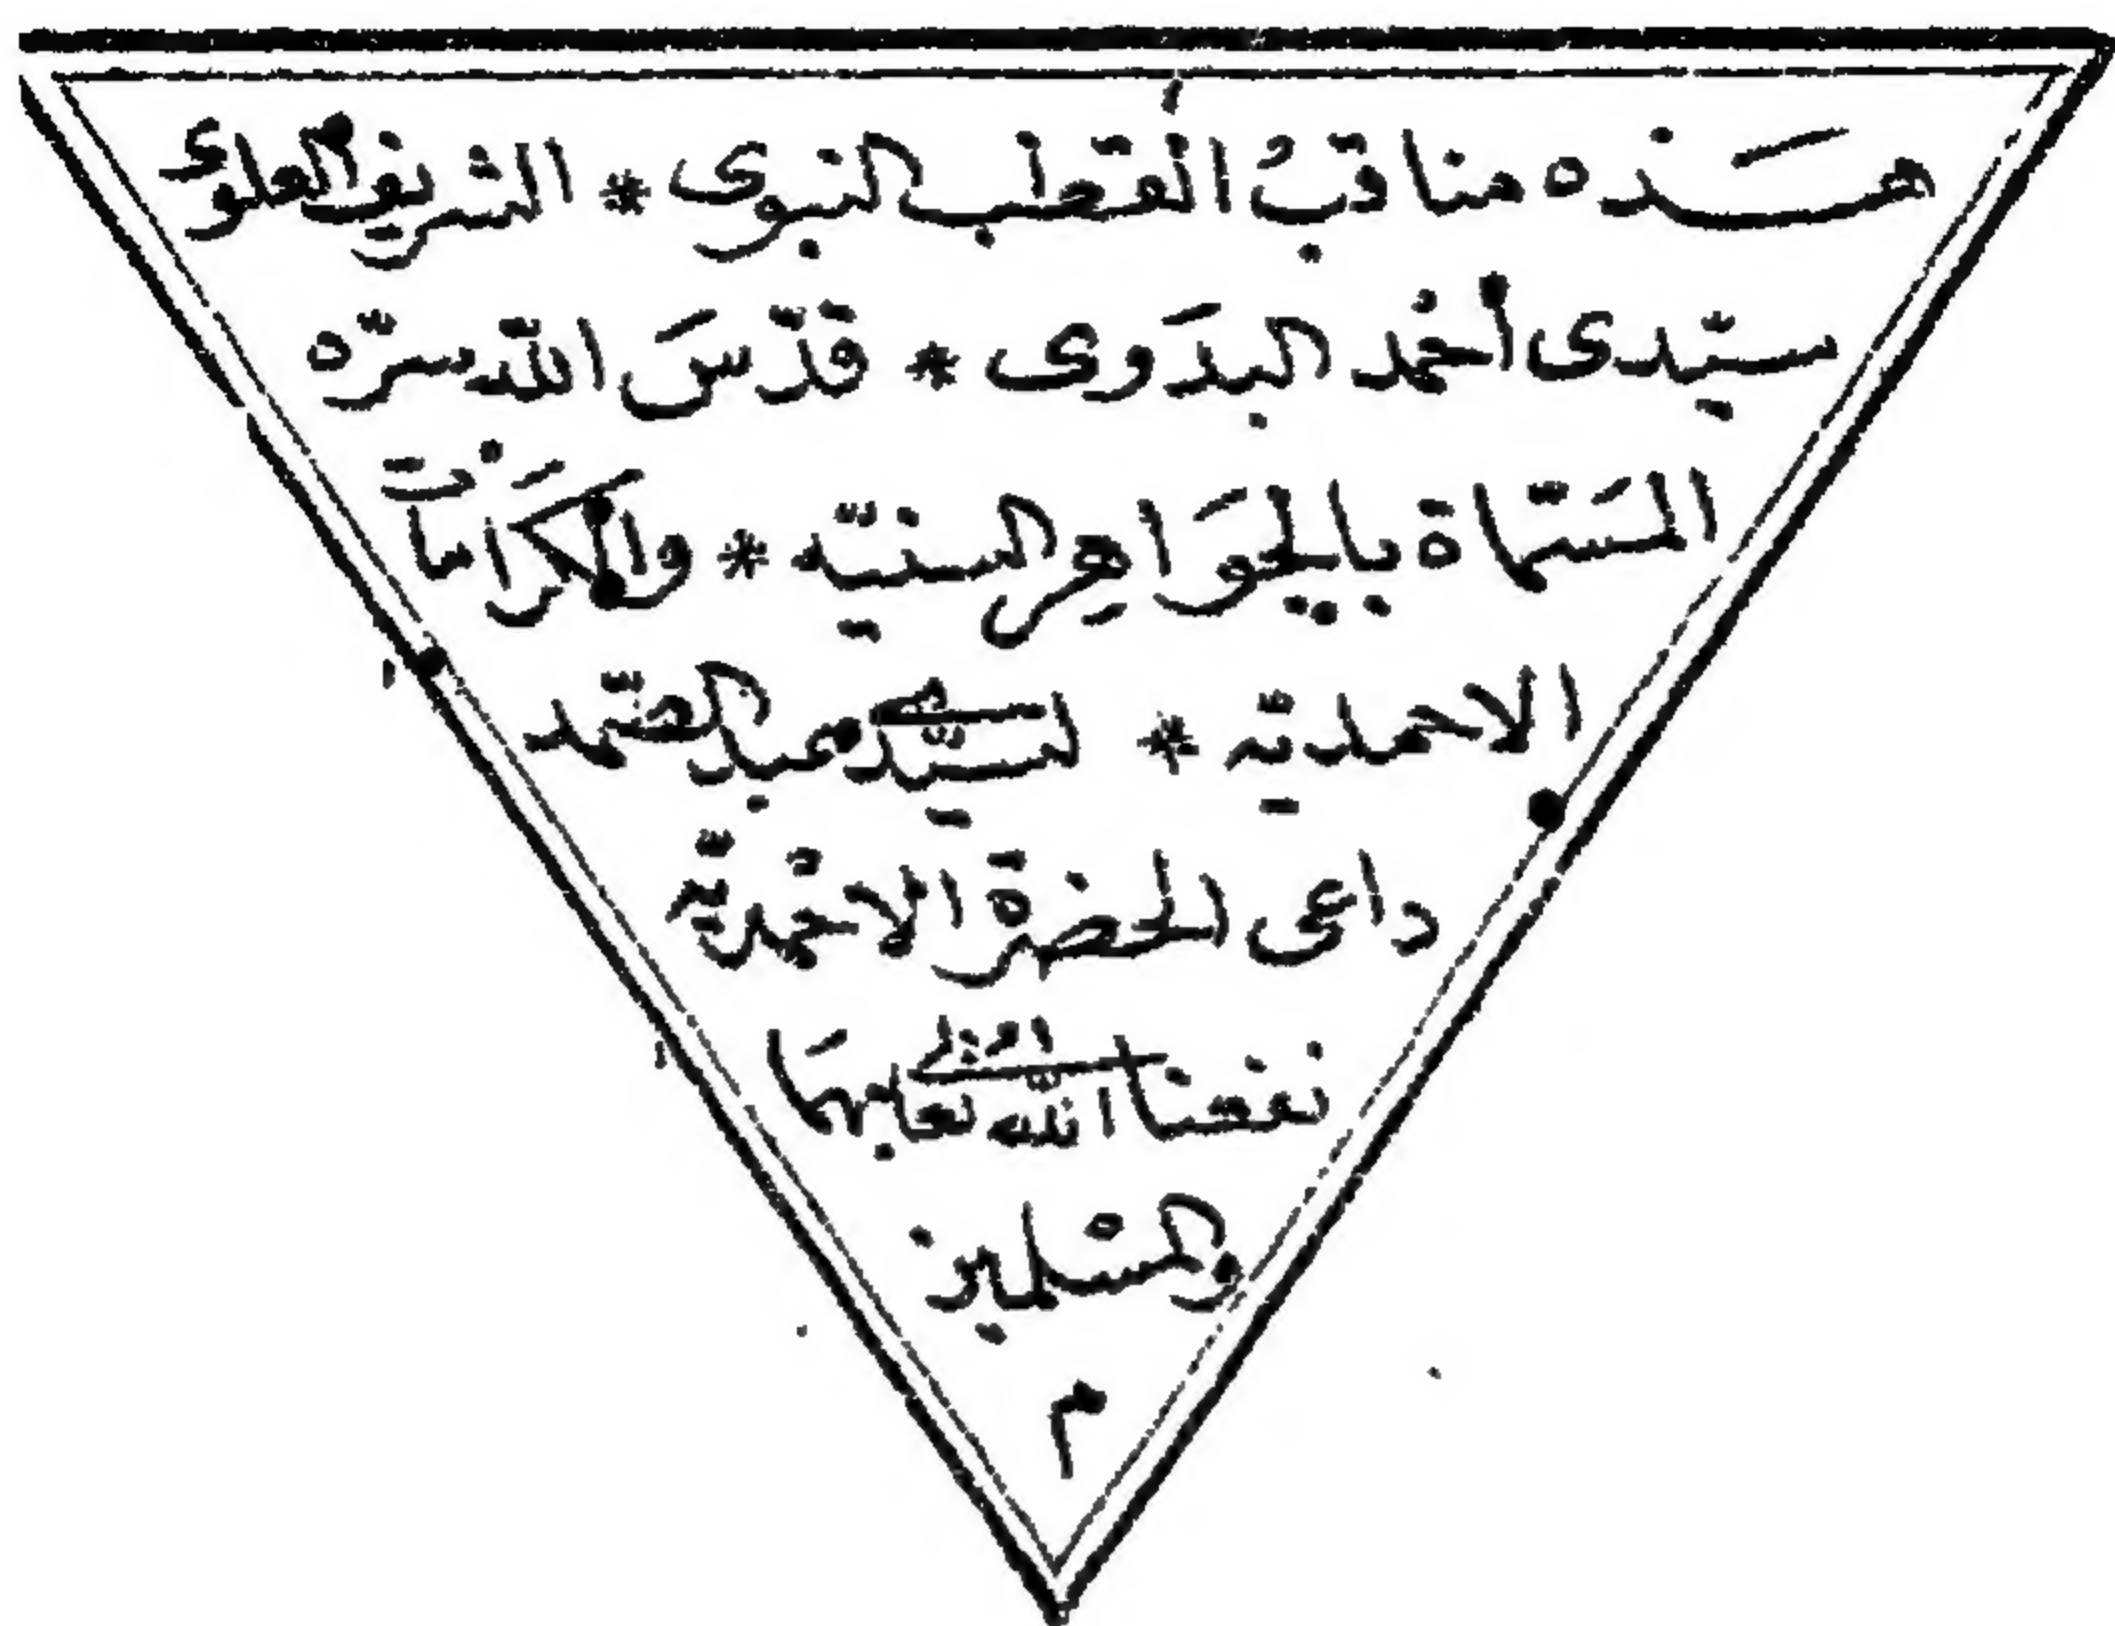 هَذه مناقبُ القطب النبوى * الشريف العلوى
سيّدى أحْمد البدَوى * قدّسَ اللّه سرّه
المسَمّاة بالجوَاهِر السنيّه * والكرَامَات
الاحمديّه * لسيّدى عبد الصّمد
داعى الحضرة الاحْمديّه
نفعنا اللّه تعالى بهمَا
والمسْلمين
م